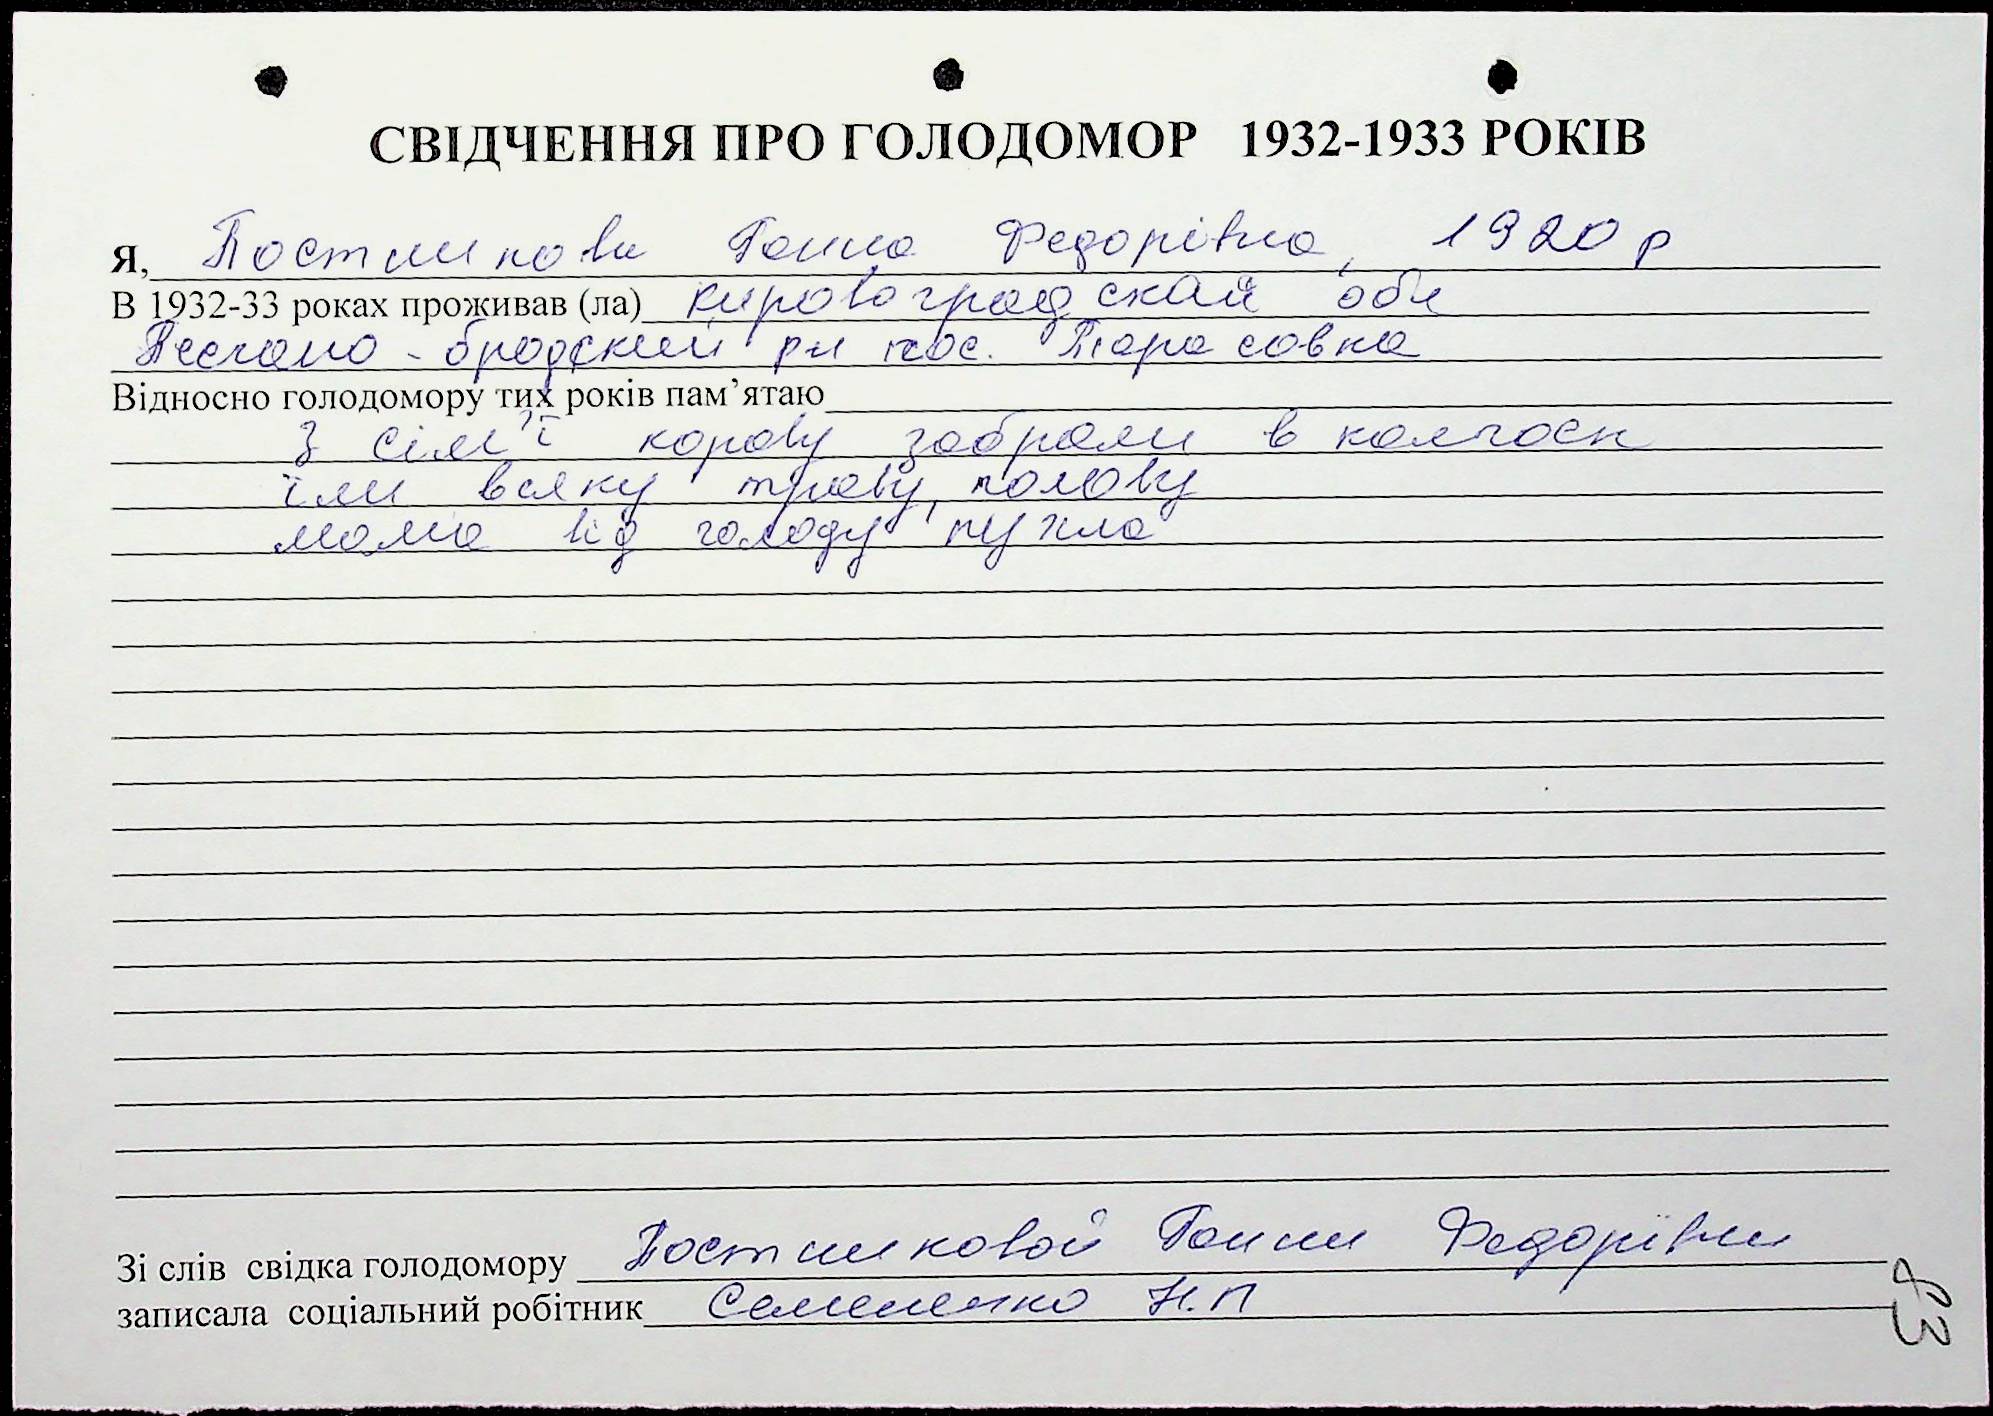 СВІДЧЕННЯ ПРО ГОЛОДОМОР 1932-1933 РОКІВ
Я, Постникова Ганна Федорівна, 1920 р
В 1932-33 роках проживав (ла) кировоградскай обл
Песчано-бродский рн пос. Тарасовка
Відносно голодомору тих років пам’ятаю
З сім'ї корову забрали в колгосп
їли всяку траву, полову
мама від голоду пухла
Зі слів свідка голодомору Постниковой Ганни Федорівни
записала соціальний робітник Семененко Н.П